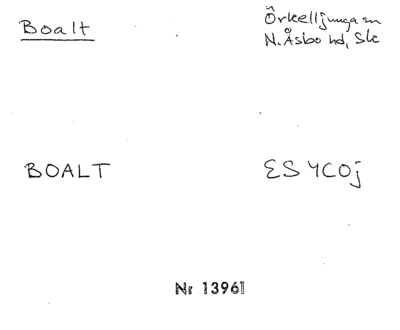 Boalt
Örkelljunga sn
N. Åsbo hd, Sk
BOALT
ES 4C0j
Nr 13961